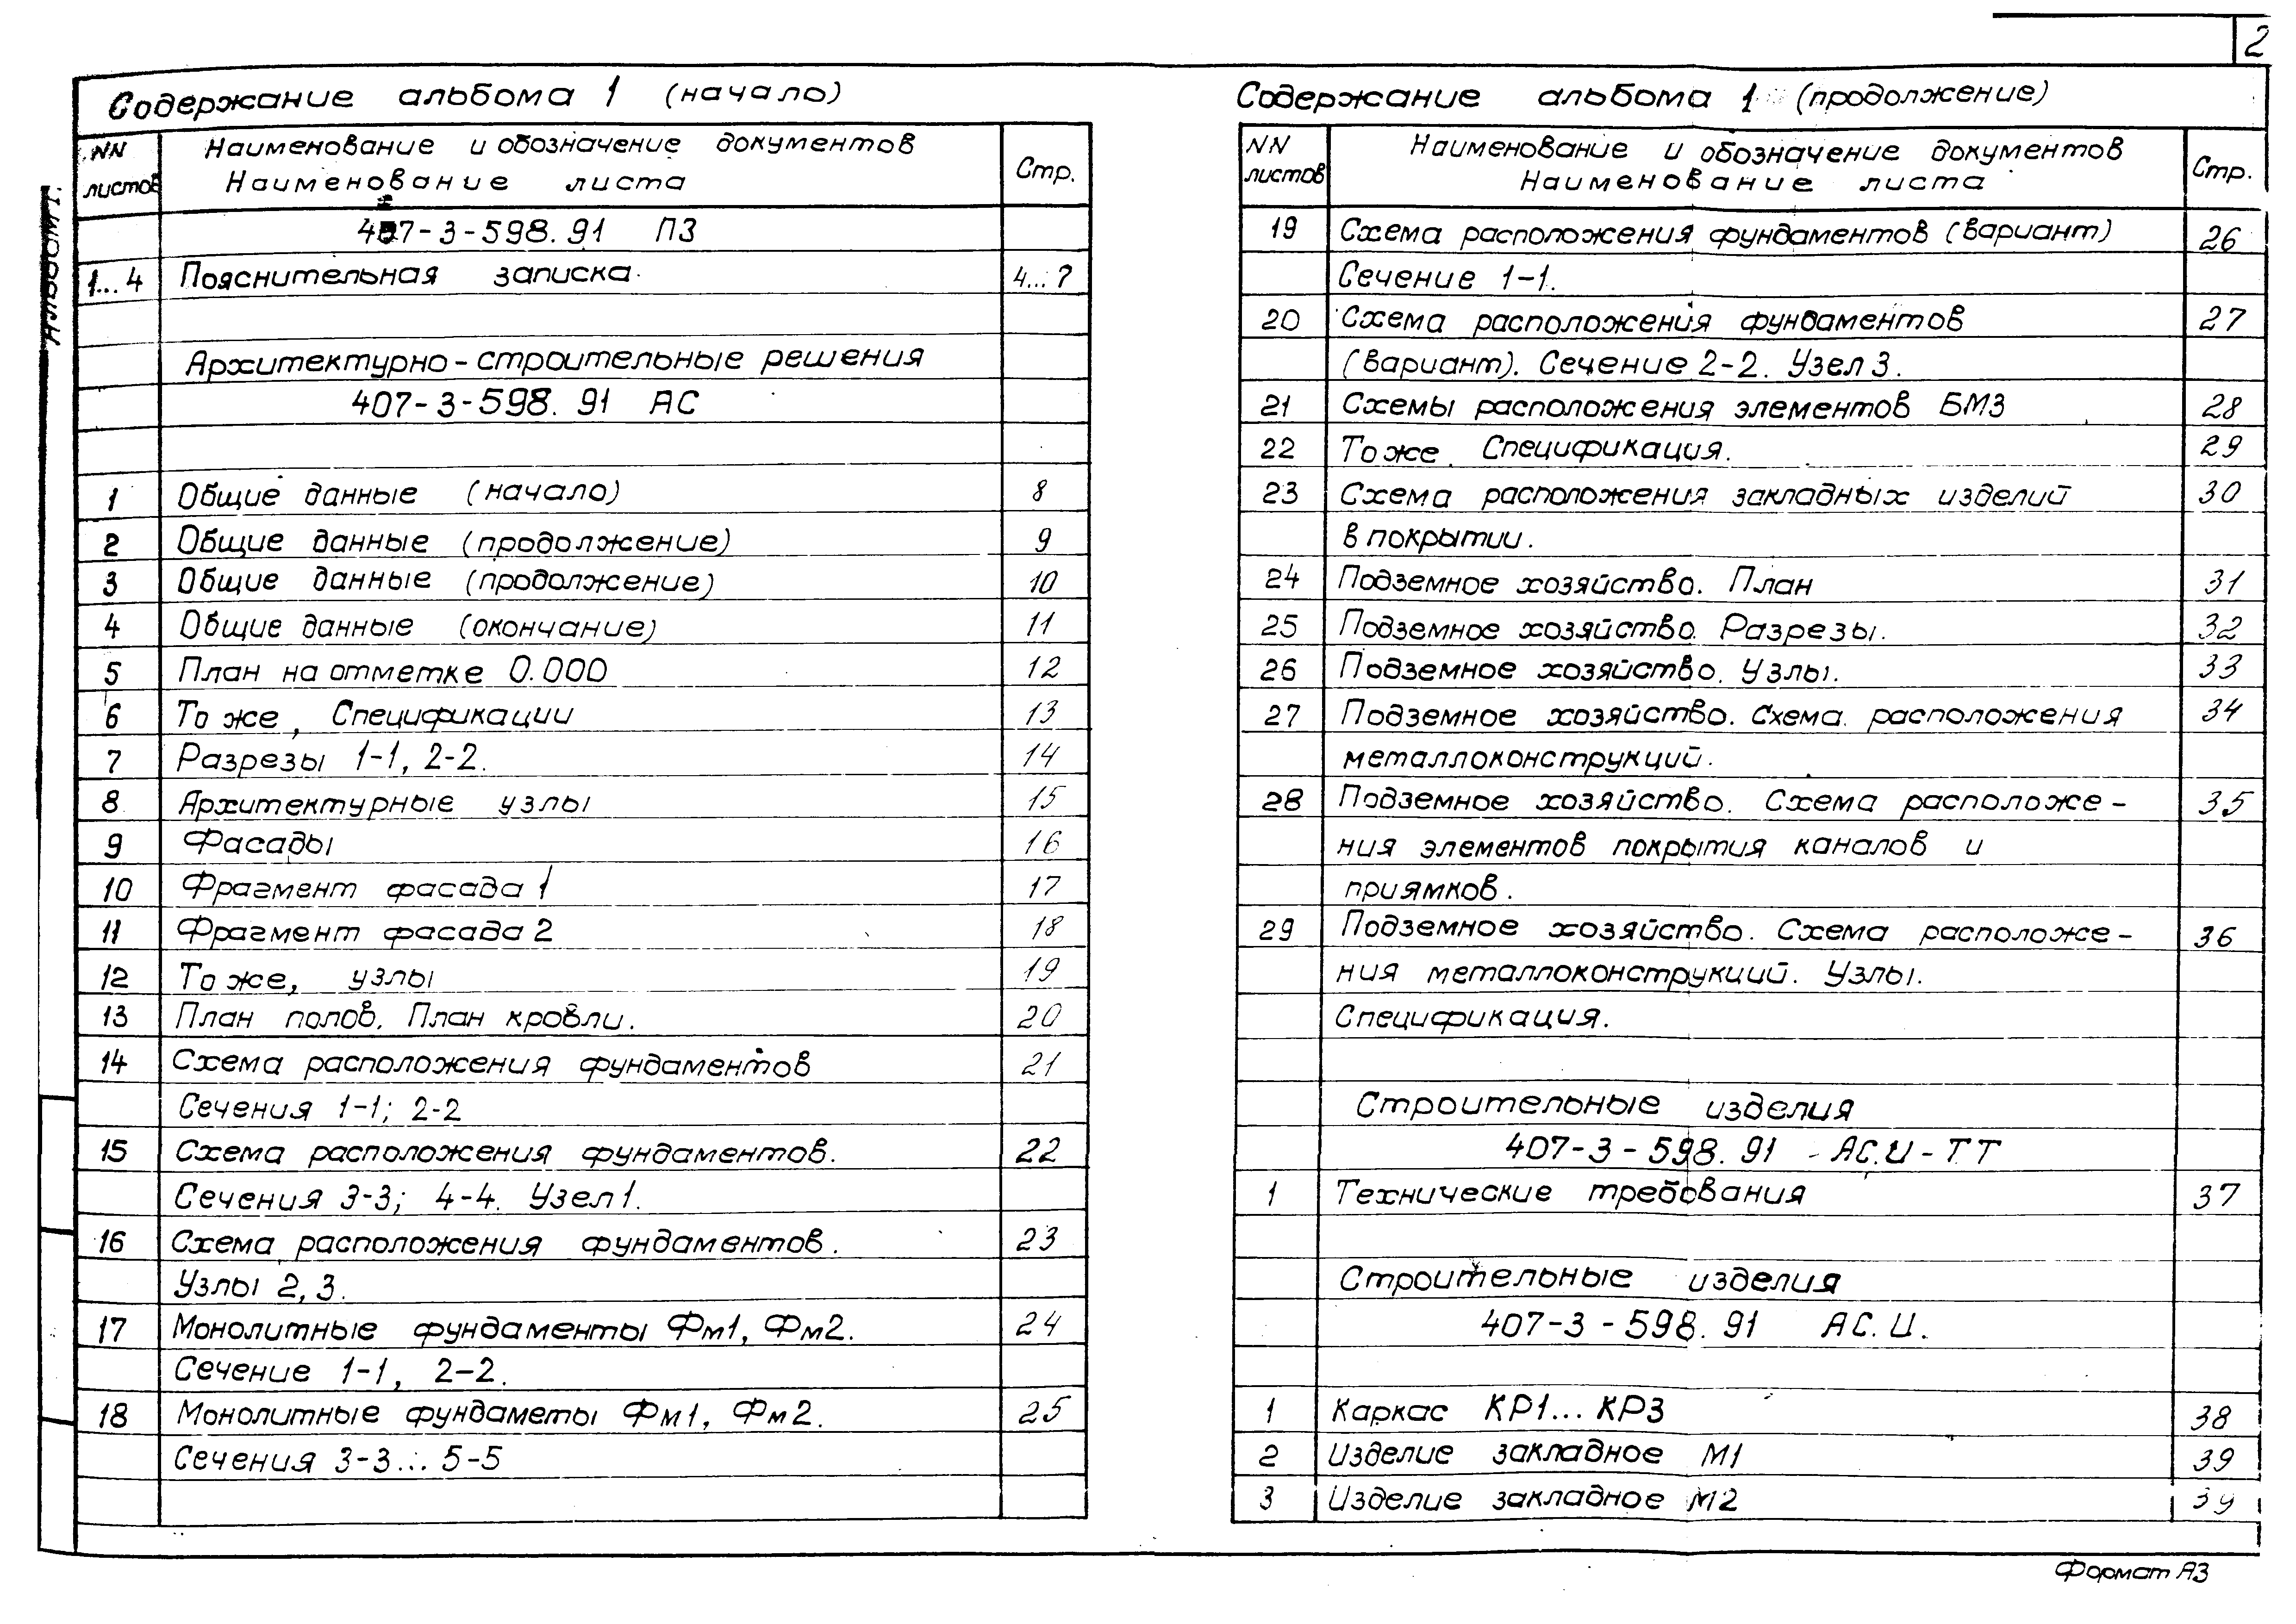 2
Содержание альбома 1 (начало)
NN листов
Наименование и обозначение документов
Наименование листа
Стр.
407-3-598.91 ПЗ
1...4 Пояснительная записка. 4...7
Архитектурно-строительные решения
407-3-598.91 АС
1 Общие данные (начало) 8
2 Общие данные (продолжение) 9
3 Общие данные (продолжение) 10
4 Общие данные (окончание) 11
5 План на отметке 0.000 12
6 То же, Спецификации 13
7 Разрезы 1-1, 2-2. 14
8 Архитектурные узлы 15
9 Фасады 16
10 Фрагмент фасада 1 17
11 Фрагмент фасада 2 18
12 То же, узлы 19
13 План полов. План кровли. 20
14 Схема расположения фундаментов 21
Сечения 1-1; 2-2
15 Схема расположения фундаментов. 22
Сечения 3-3; 4-4. Узел 1.
16 Схема расположения фундаментов. 23
Узлы 2, 3.
17 Монолитные фундаменты Фм1, Фм2. 24
Сечение 1-1, 2-2.
18 Монолитные фундаметы Фм1, Фм2. 25
Сечения 3-3... 5-5
Содержание альбома 1 (продолжение)
NN листов
Наименование и обозначение документов
Наименование листа
Стр.
19 Схема расположения фундаментов (вариант) 26
Сечение 1-1.
20 Схема расположения фундаментов 27
(вариант). Сечение 2-2. Узел 3.
21 Схемы расположения элементов БМЗ 28
22 То же. Спецификация. 29
23 Схема расположения закладных изделий 30
в покрытии.
24 Подземное хозяйство. План 31
25 Подземное хозяйство. Разрезы. 32
26 Подземное хозяйство. Узлы. 33
27 Подземное хозяйство. Схема расположения 34
металлоконструкций.
28 Подземное хозяйство. Схема расположе- 35
ния элементов покрытия каналов и
приямков.
29 Подземное хозяйство. Схема расположе- 36
ния металлоконструкций. Узлы.
Спецификация.
Строительные изделия
407-3-598.91 - АС.И-ТТ
1 Технические требования 37
Строительные изделия
407-3-598.91 АС.И.
1 Каркас КР1... КР3 38
2 Изделие закладное М1 39
3 Изделие закладное М2 39
Формат А3